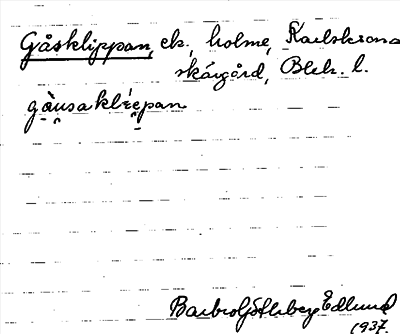 Gåsklippan, ek., holme, Karlskrona
skärgård, Blek. l.
gàusaklépan
Edlund
1937.